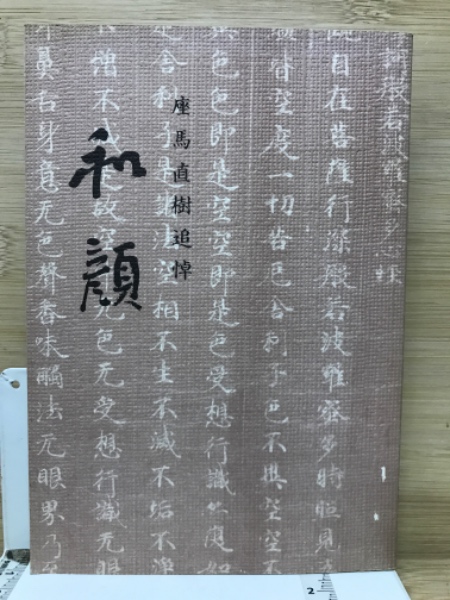 訶般若波羅蜜多心経
観自在菩薩行深般若波羅蜜多時照見五
蘊皆空度一切苦厄舎利子色不異空空不
異色色即是空空即是色受想行識亦復如
座馬直樹追悼
是舎利子是諸法空相不生不滅不垢不浄
和顔
不増不減是故空中无色无受想行識无眼
耳鼻舌身意无色聲香味觸法无眼界乃至
2